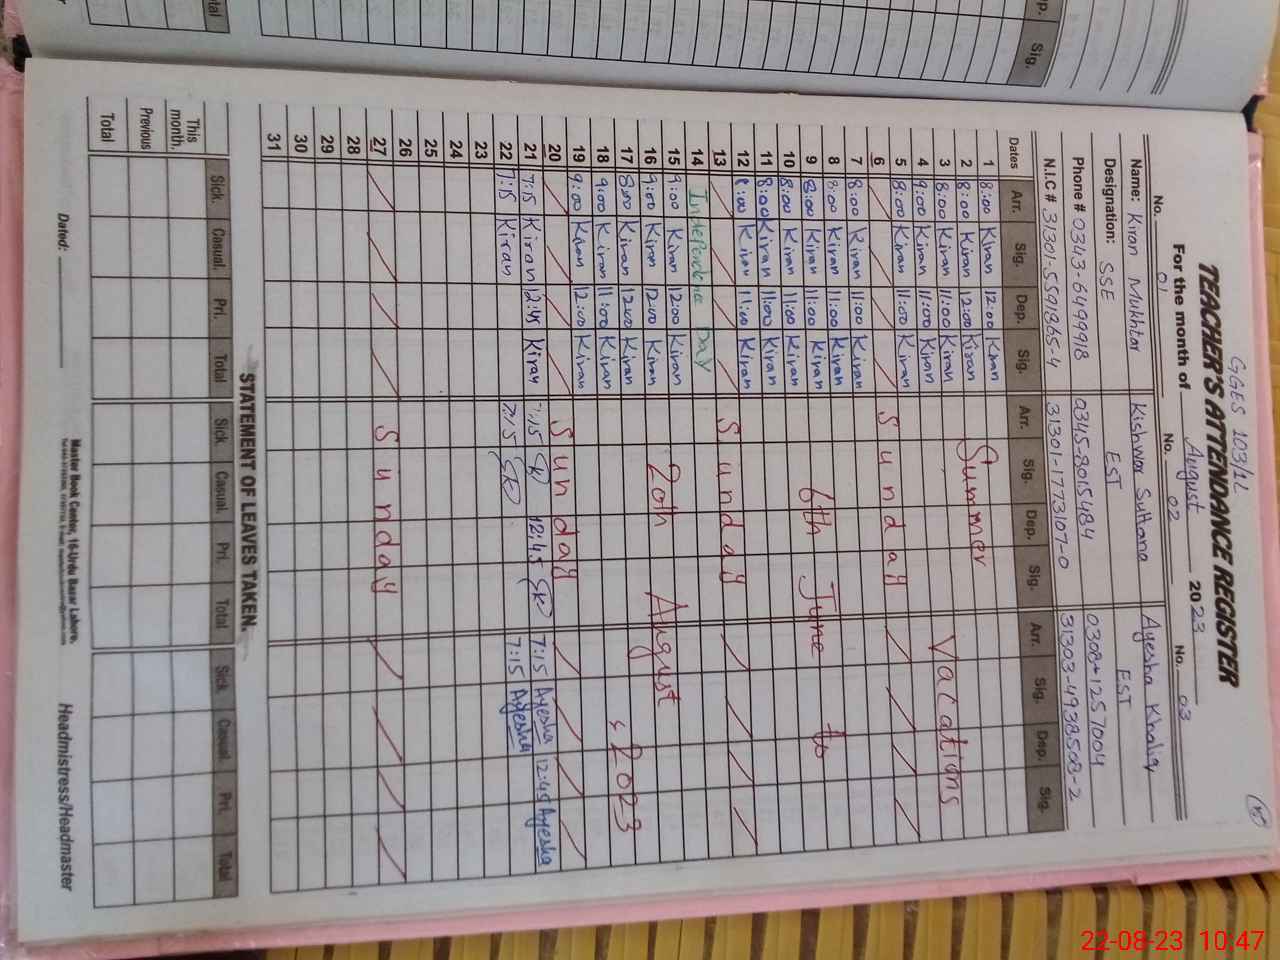 GGES 103/1L
TEACHER'S ATTENDANCE REGISTER
For the month of August 2023
No. 01 No. 02 No. 03
Name: Kiran Mukhtar Kishwar Sultana Ayesha Khaliq
Designation: SSE EST EST
Phone # 0343-6499918 0345-8015484 0308-1257004
N.I.C # 31301-5591865-4 31301-1773107-0 31303-4938503-2
Dates Arr. Sig. Dep. Sig. Arr. Sig. Dep. Sig. Arr. Sig. Dep. Sig.
1 8:00 Kiran 12:00 Kiran
2 8:00 Kiran 12:00 Kiran Summer Vacations
3 8:00 Kiran 11:00 Kiran
4 9:00 Kiran 11:00 Kiran
5 8:00 Kiran 11:00 Kiran
6 Sunday
7 8:00 Kiran 11:00 Kiran
8 8:00 Kiran 11:00 Kiran
9 8:00 Kiran 11:00 Kiran 6th June to
10 8:00 Kiran 11:00 Kiran
11 8:00 Kiran 11:00 Kiran
12 8:00 Kiran 11:00 Kiran
13 Sunday
14 Independence DAY
15 9:00 Kiran 12:00 Kiran
16 9:00 Kiran 12:00 Kiran 20th August, 2023
17 8:00 Kiran 12:00 Kiran
18 9:00 Kiran 11:00 Kiran
19 9:00 Kiran 12:00 Kiran
20 Sunday
21 7:15 Kiran 12:45 Kiran 7:15 SK 12:45 SK 7:15 Ayesha 12:45 Ayesha
22 7:15 Kiran 7:15 SK 7:15 Ayesha
23
24
25
26
27 Sunday
28
29
30
31
STATEMENT OF LEAVES TAKEN.
Sick. Casual. Pri. Total Sick Casual. Pri. Total Sick. Casual. Pri. Total
This month.
Previous
Total
Dated:
Master Book Center, 16-Urdu Bazar Lahore.
Headmistress/Headmaster
Sig.
22-08-23 10:47